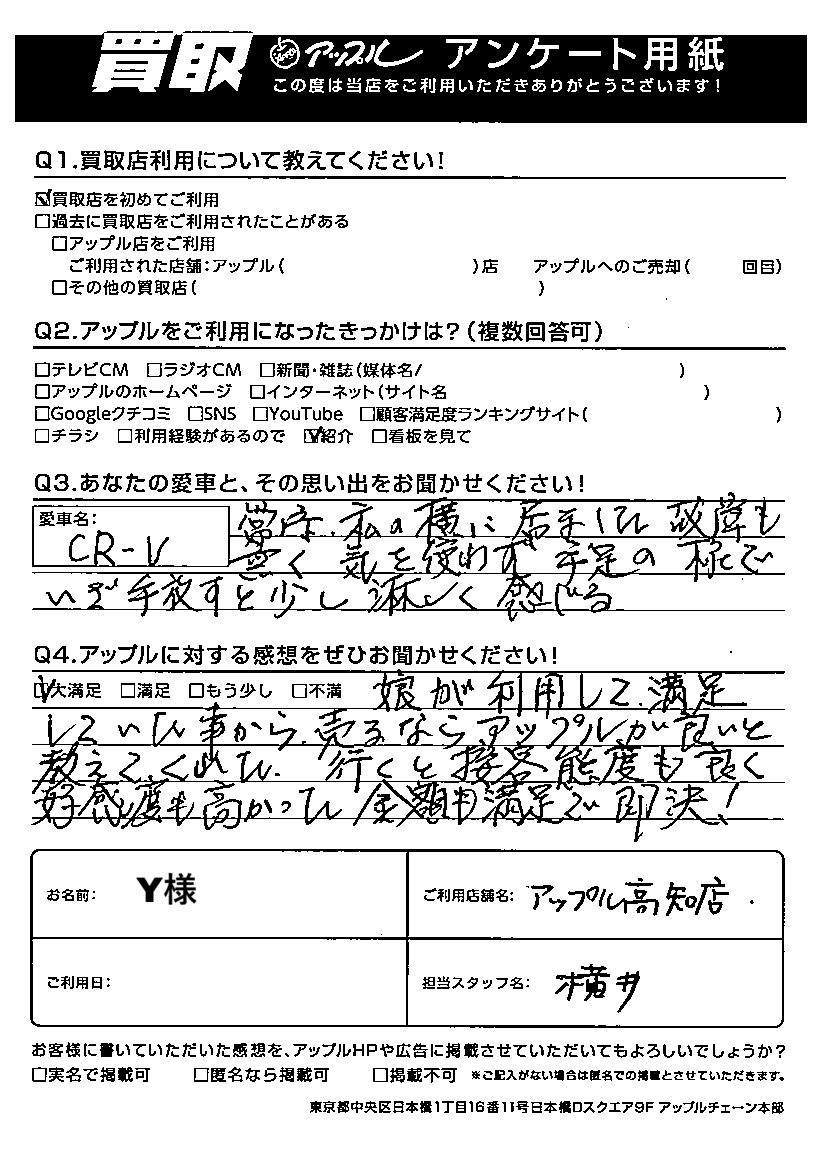 買取 アップル アンケート用紙
この度は当店をご利用いただきありがとうございます!
Q1.買取店利用について教えてください!
☑買取店を初めてご利用
□過去に買取店をご利用されたことがある
□アップル店をご利用
ご利用された店舗:アップル( )店 アップルへのご売却( 回目)
□その他の買取店( )
Q2.アップルをご利用になったきっかけは?(複数回答可)
□テレビCM □ラジオCM □新聞・雑誌(媒体名/ )
□アップルのホームページ □インターネット(サイト名 )
□Googleクチコミ □SNS □YouTube □顧客満足度ランキングサイト( )
□チラシ □利用経験があるので ☑紹介 □看板を見て
Q3.あなたの愛車と、その思い出をお聞かせください!
愛車名:
CR-V
常に私の横に居ました 故障も
無く 気を使わず 手足の様で
いざ手放すと少し淋しく感じる
Q4.アップルに対する感想をぜひお聞かせください!
☑大満足 □満足 □もう少し □不満 娘が利用して満足
していた事から、売るならアップルが良いと
教えてくれた。行くと接客態度も良く
好感度も高かった 金額も満足で即決!
お名前: Y様
ご利用店舗名: アップル高知店
ご利用日:
担当スタッフ名: 横井
お客様に書いていただいた感想を、アップルHPや広告に掲載させていただいてもよろしいでしょうか?
□実名で掲載可 □匿名なら掲載可 □掲載不可 ※ご記入がない場合は匿名での掲載とさせていただきます。
東京都中央区日本橋1丁目16番11号日本橋Dスクエア9F アップルチェーン本部